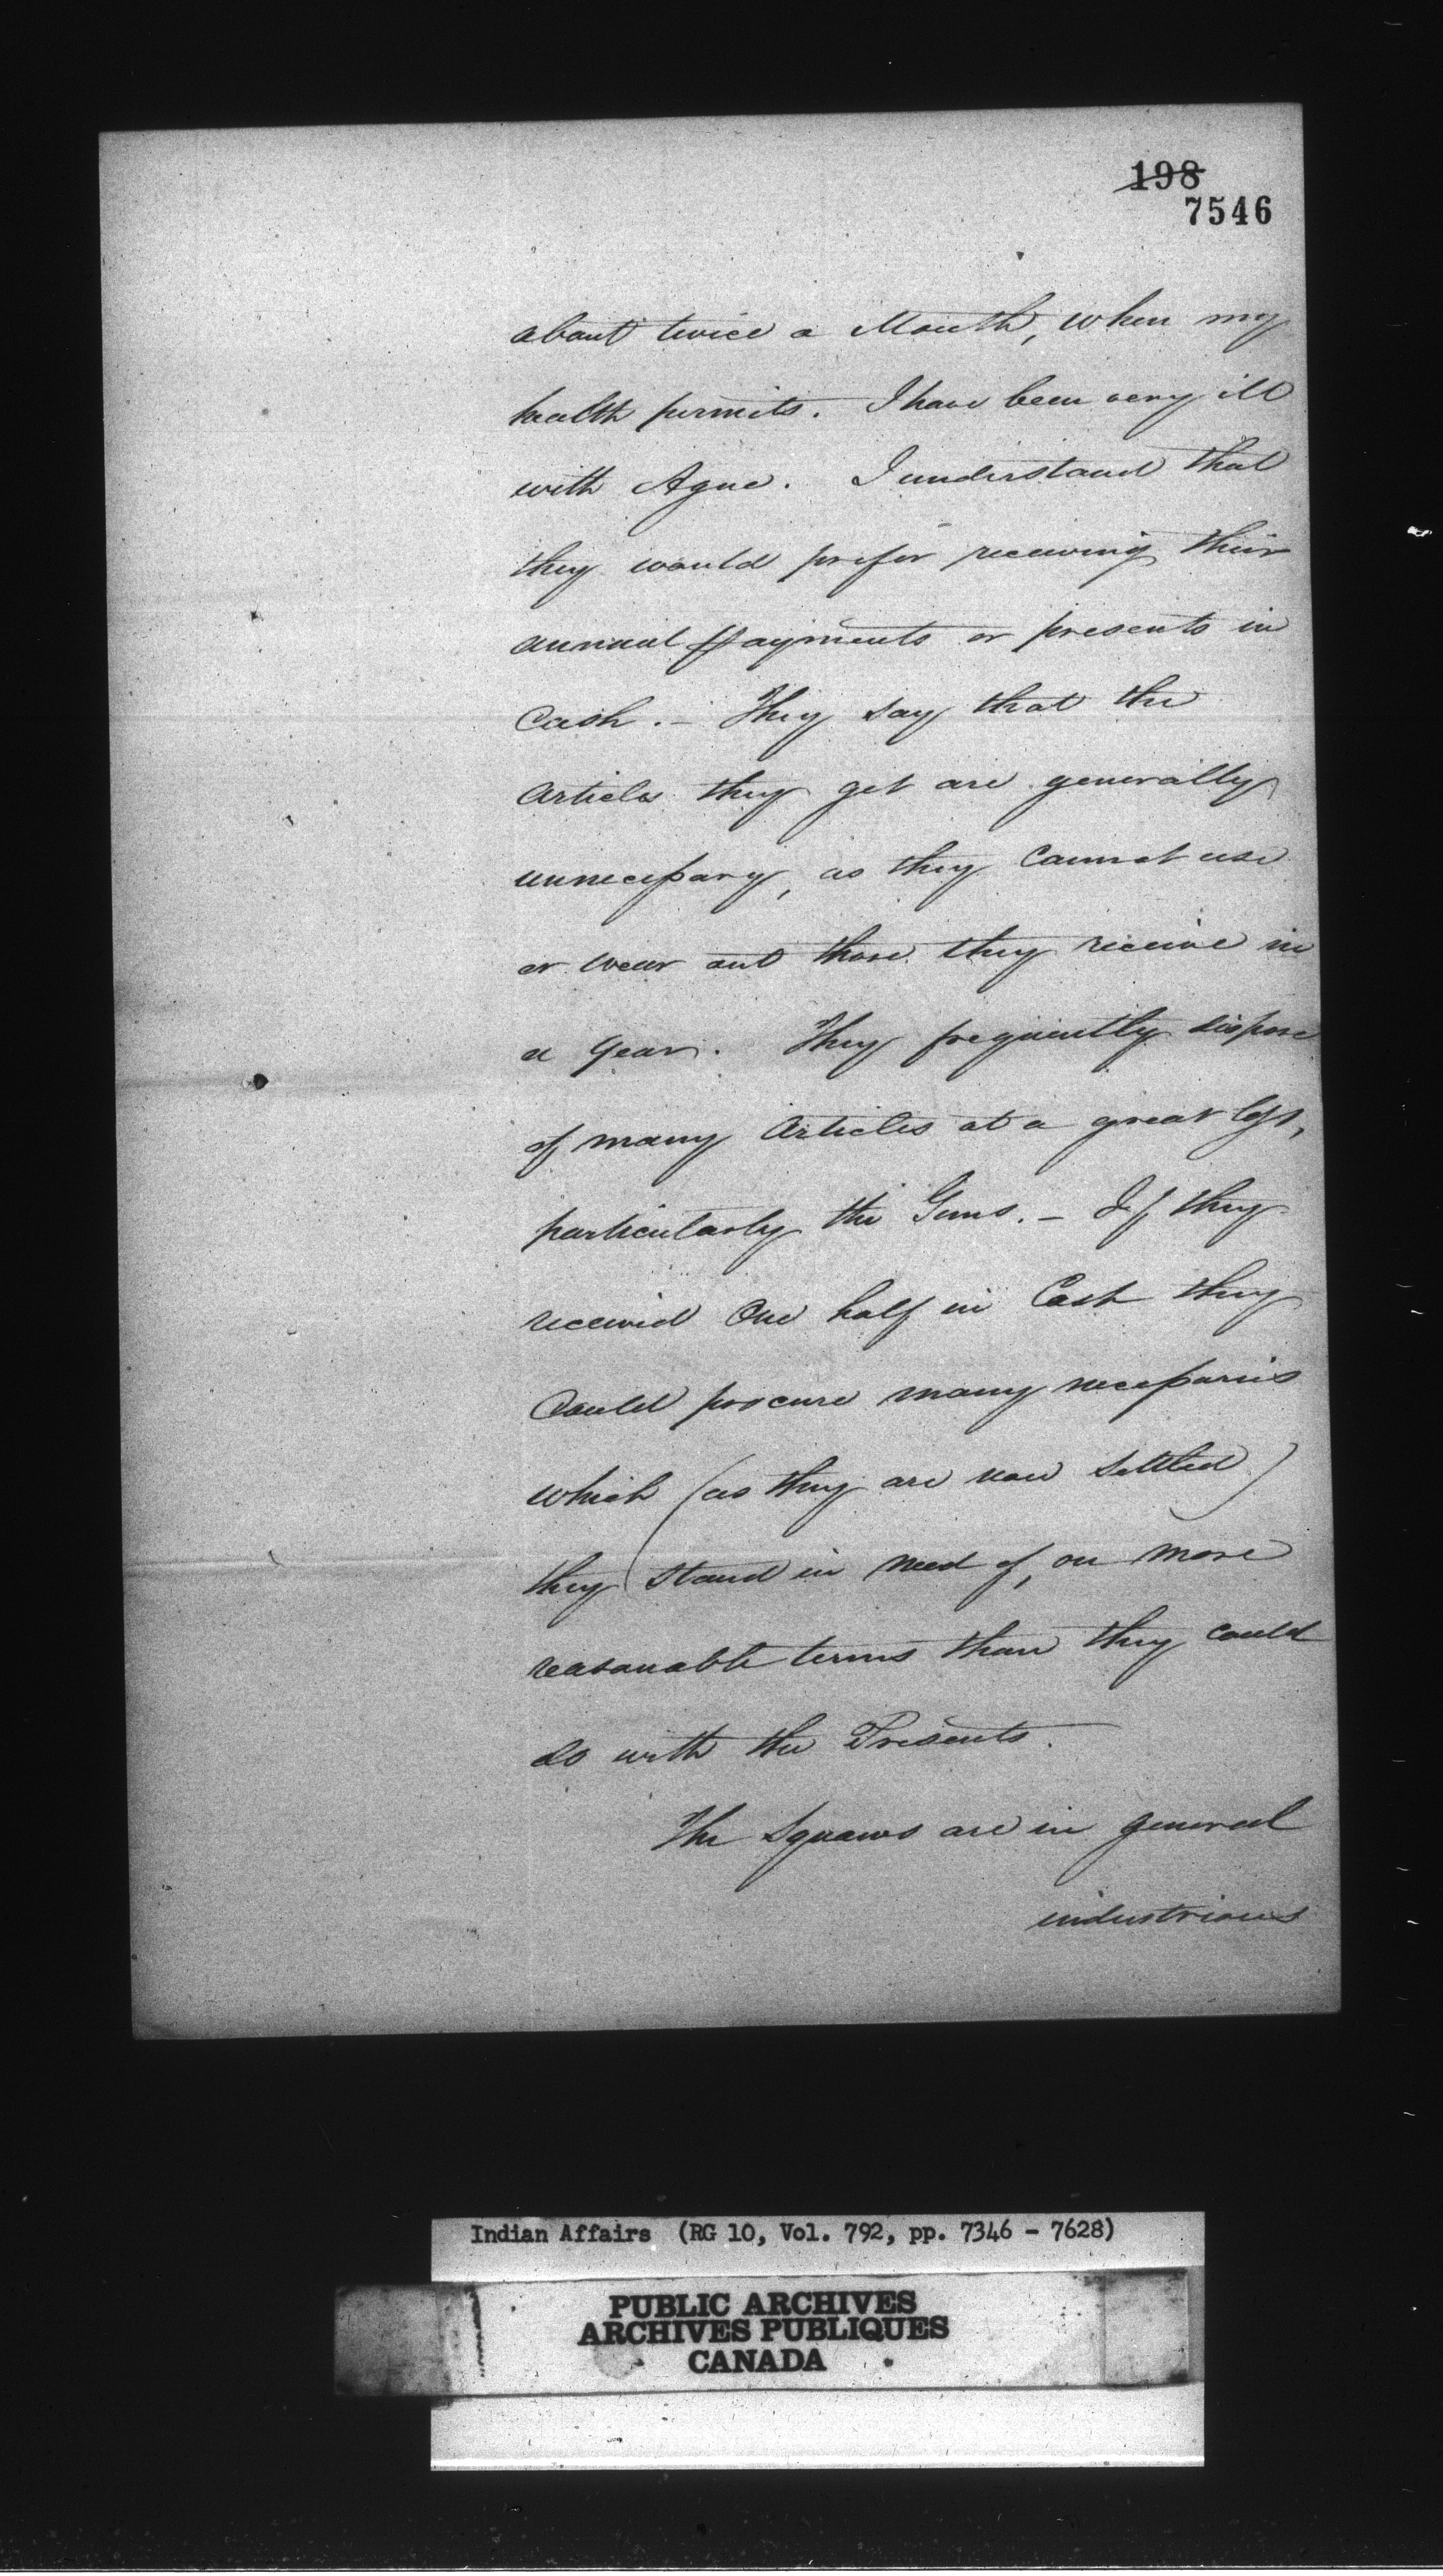 198
7546
about twice a Month, when my
health permits. I have been very ill
with Ague. I understand that
they would prefer receiving their
annual payments or presents in
Cash. - They say that the
Articles they get are generally
unnecessary, as they Cannot use
or wear out those they receive in
a year. They frequently dispose
of many Articles at a great loss,
particularly the Guns. - If they
received One half in Cash they
Could procure many necessaries
which (as they are now settled)
they stand in need of, on more
reasonable terms than they could
do with the Presents.
The Squaws are in general
industrious
Indian Affairs (RG 10, Vol. 792, pp. 7346 - 7628)
PUBLIC ARCHIVES
ARCHIVES PUBLIQUES
CANADA